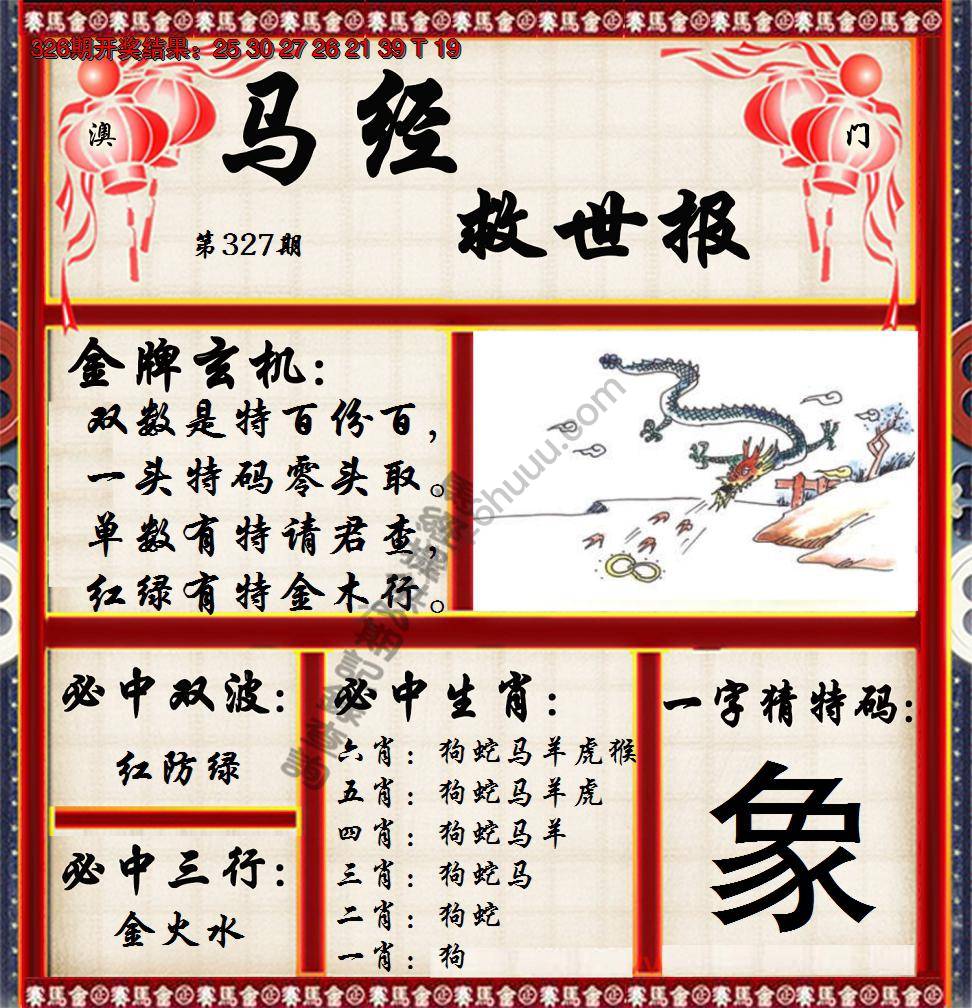 326期开奖结果：25 30 27 26 21 39 T 19
澳 门
马经
救世报
第327期
金牌玄机：
双数是特百份百，
一头特码零头取。
单数有特请君查，
红绿有特金木行。
必中双波：
红防绿
必中三行：
金火水
必中生肖：
六肖：狗蛇马羊虎猴
五肖：狗蛇马羊虎
四肖：狗蛇马羊
三肖：狗蛇马
二肖：狗蛇
一肖：狗
一字猜特码：
象